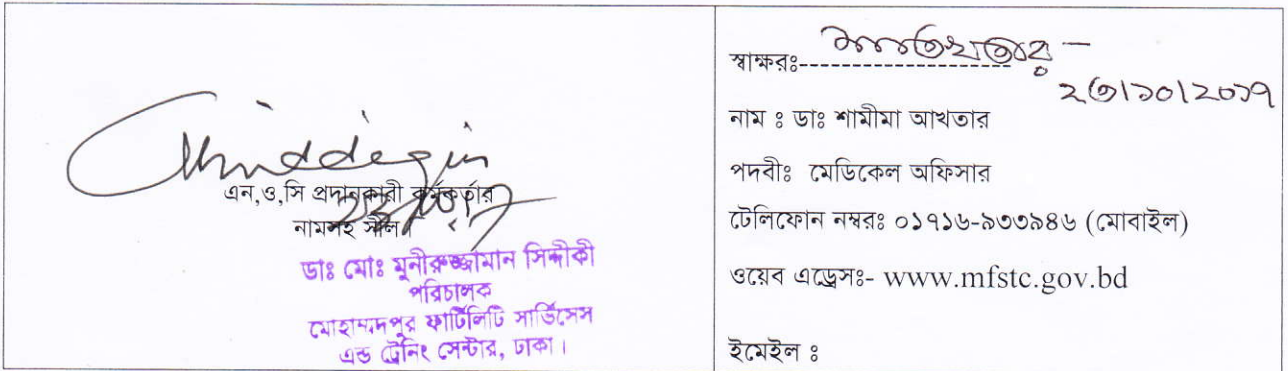 এন,ও,সি প্রদানকারী কর্মকর্তার
নামসহ সীল
ডাঃ মোঃ মুনীরুজ্জামান সিদ্দীকী
পরিচালক
মোহাম্মদপুর ফার্টিলিটি সার্ভিসেস
এন্ড ট্রেনিং সেন্টার, ঢাকা।
স্বাক্ষরঃ--------------------
২৩/১০/২০১৭
নাম ঃ ডাঃ শামীমা আখতার
পদবীঃ মেডিকেল অফিসার
টেলিফোন নম্বরঃ ০১৭১৬-৯৩৩৯৪৬ (মোবাইল)
ওয়েব এড্রেসঃ- www.mfstc.gov.bd
ইমেইল ঃ